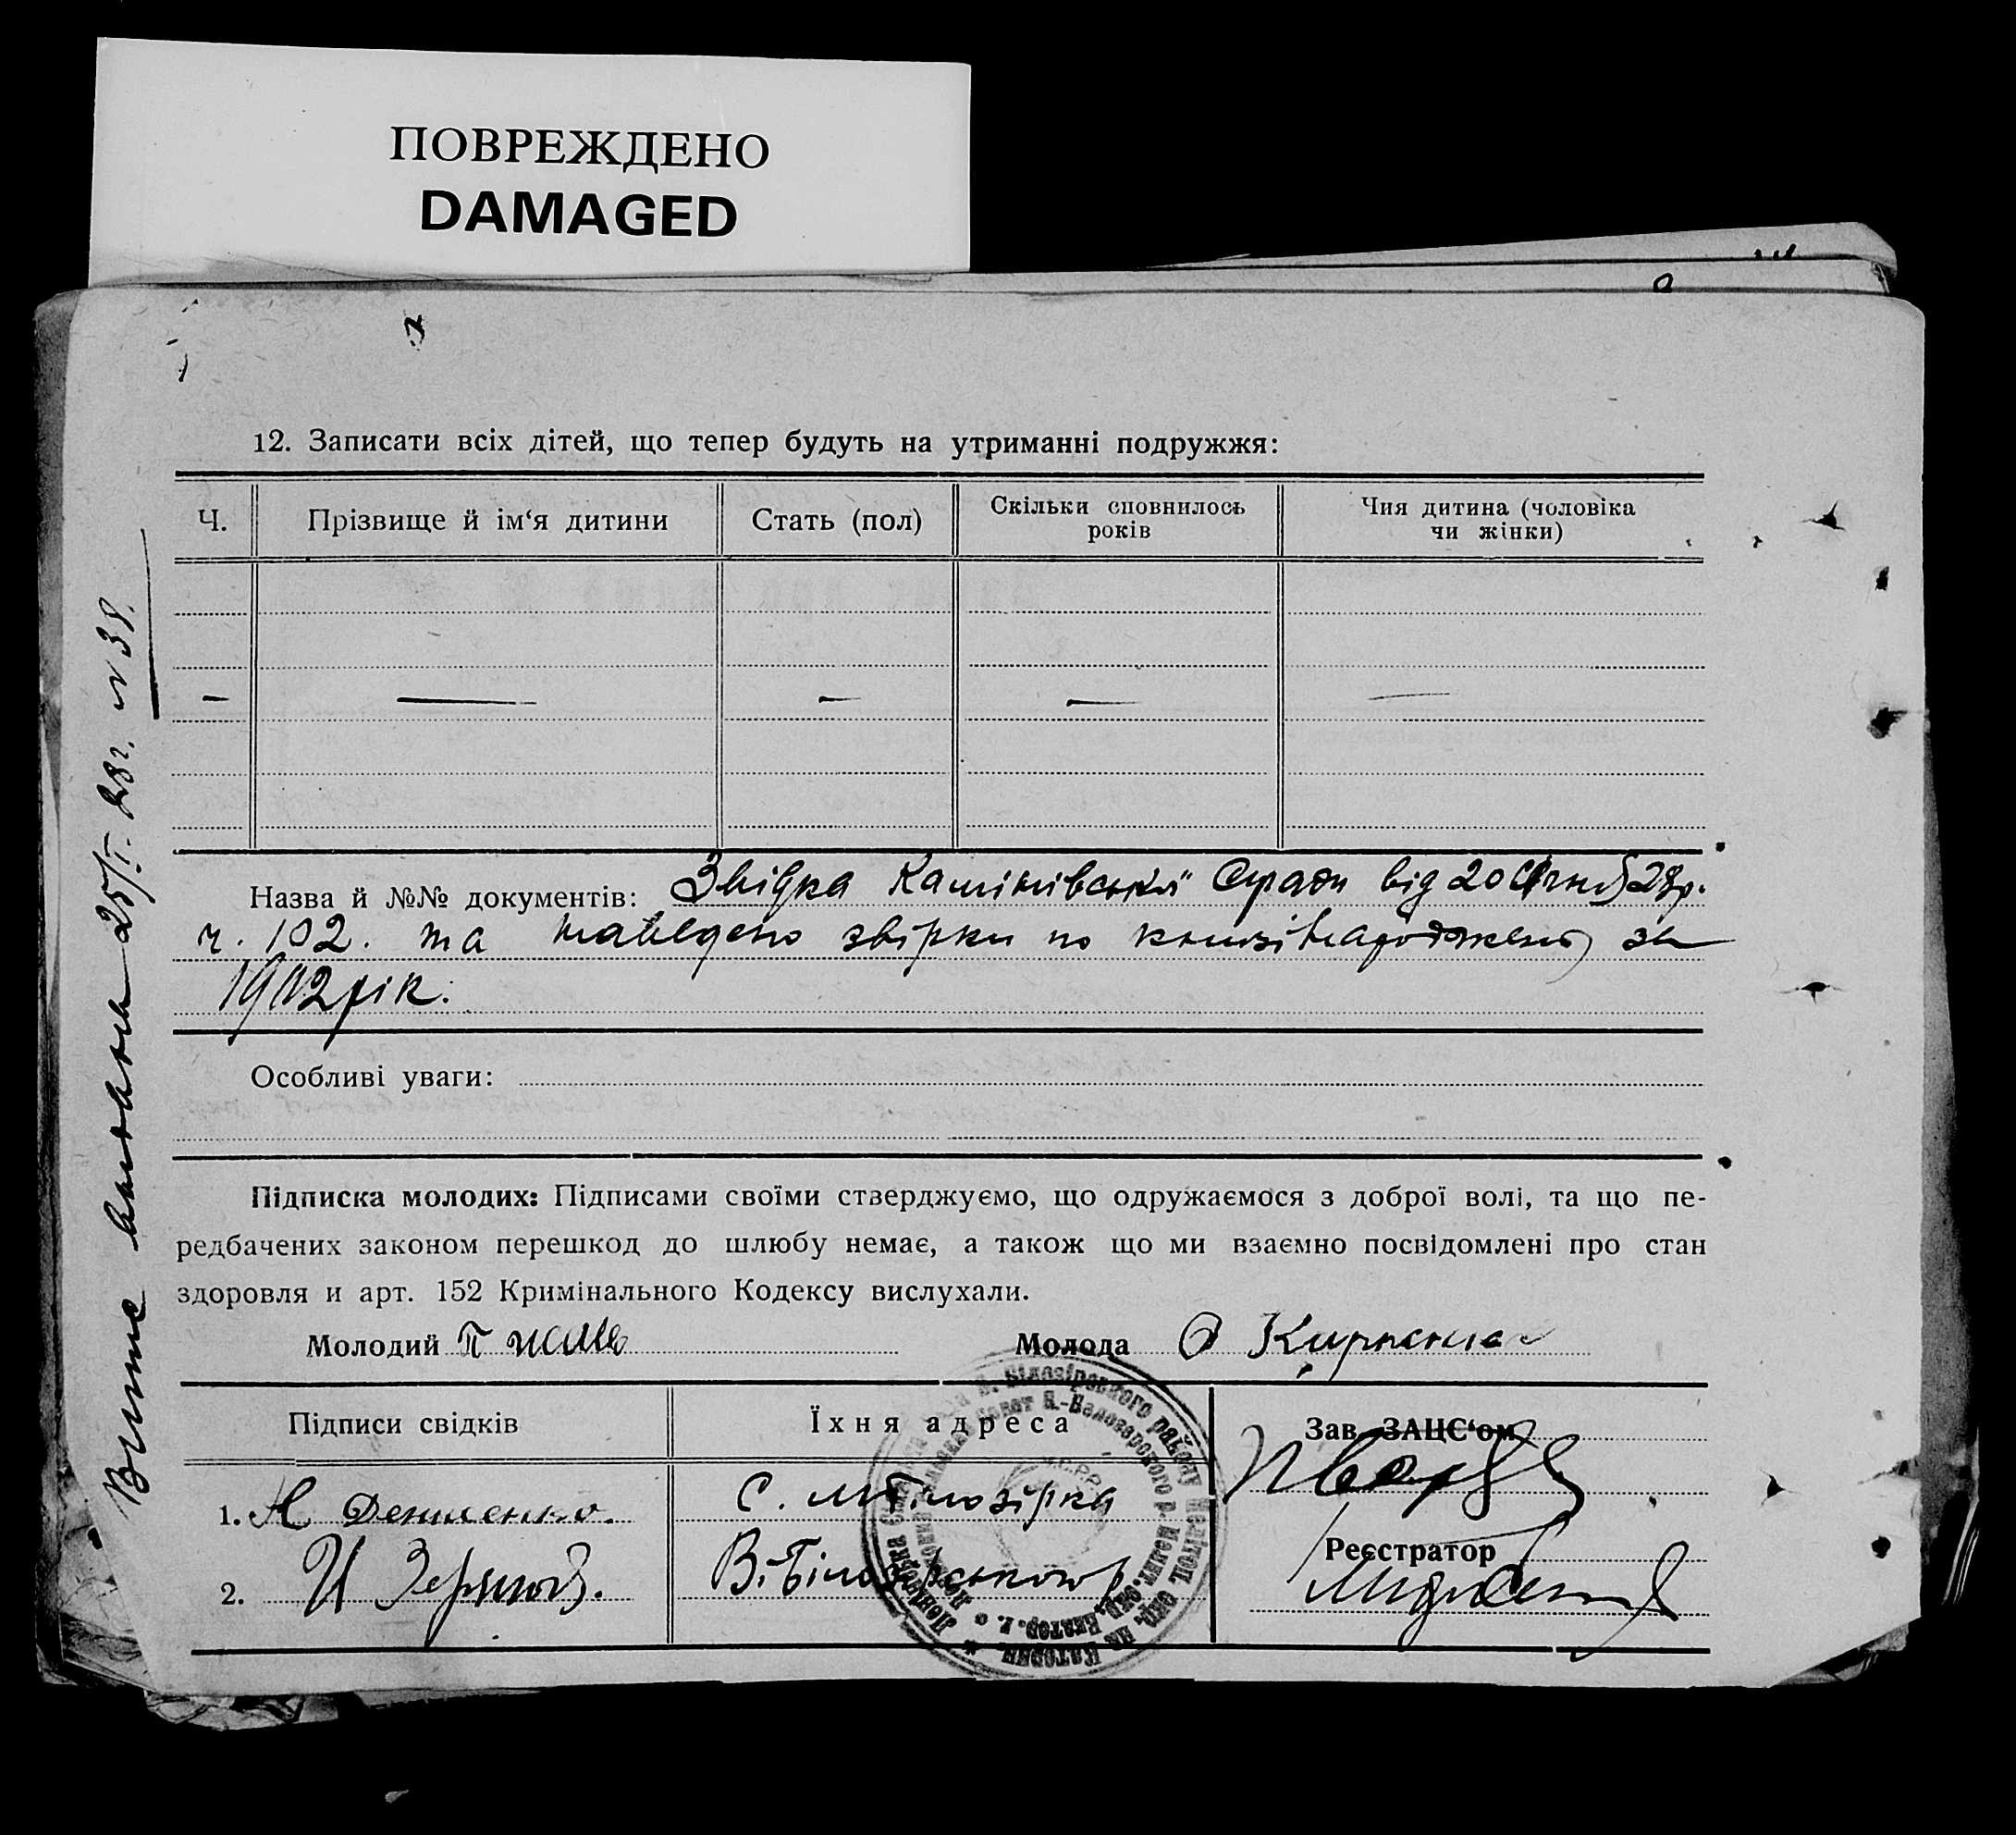 ПОВРЕЖДЕНО
DAMAGED
12. Записати всіх дітей, що тепер будуть на утриманні подружжя:
Ч. Прізвище й ім‘я дитини Стать (пол) Скільки сповнилось років Чия дитина (чоловіка чи жінки)
— — — — —
Назва й №№ документів: Звідка від 20 Січня 28р.
ч. 102. та наведено звірки по книзі народжень за
1902 рік.
Особливі уваги:
Підписка молодих: Підписами своїми стверджуємо, що одружаємося з доброї волі, та що пе-
редбачених законом перешкод до шлюбу немає, а також що ми взаємно посвідомлені про стан
здоровля и арт. 152 Кримінального Кодексу вислухали.
Молодий П Молода
Підписи свідків Їхня адреса Зав. ЗАЦС‘ом
1. Денисенко. С. М Білозірка
Реєстратор
2. И В. Білозірського р
25/I. 28г. N 38.